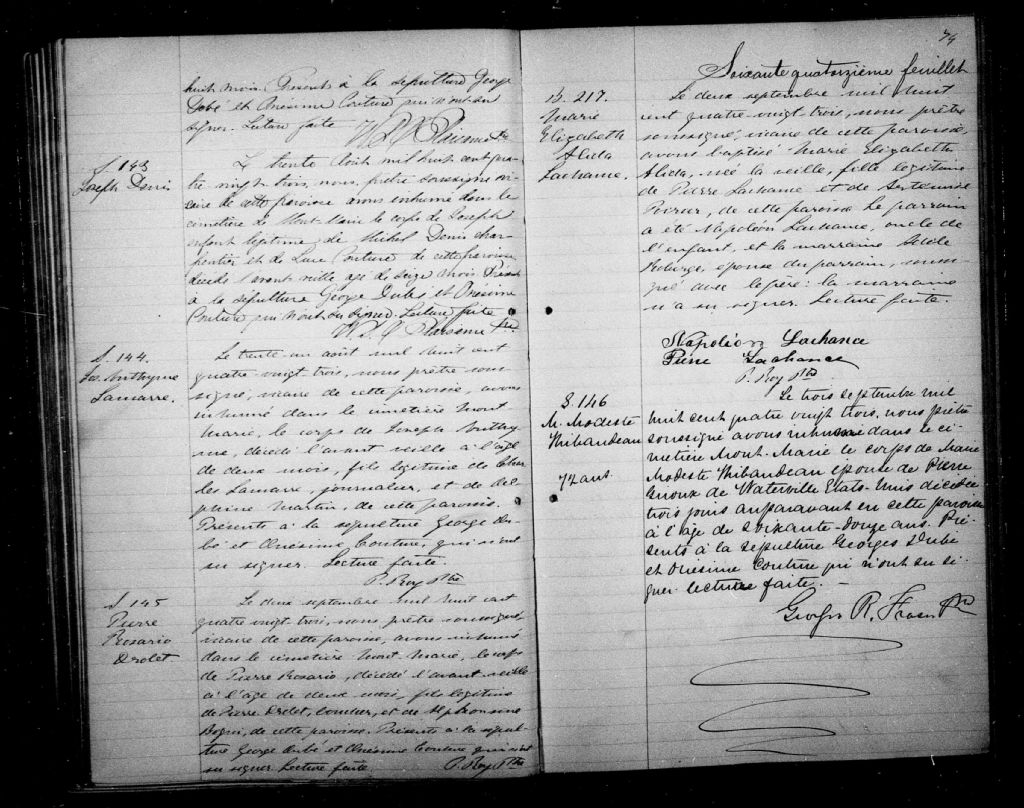 huit mois. Présent à la sépulture George
Dubé et Onésime Couture qui n'ont su
signer. Lecture faite
S 143
Joseph Denis
Le trente Août mil huit cent qua-
tre vingt trois, nous, prêtre soussigné vi-
caire de cette paroisse avons inhumé dans le
cimetière de Mont Marie le corps de Joseph
enfant légitime de Michel Denis char-
pentier et de Couture de cette paroisse
décédé l'avant veille agé de seize mois Présent
à la sépulture George Dubé et Onésime
Couture qui n'ont su signer. Lecture faite
S. 144.
Jos. Anthyme
Lamarre.
Le trente-un août mil huit cent
quatre-vingt-trois, nous prêtre sous-
signé, vicaire de cette paroisse, avons
inhumé dans le cimetière Mont-
Marie, le corps de Joseph Anthy-
me, décédé l'avant veille à l'âge
de deux mois, fils légitime de Char-
les Lamarre, journalier, et de Del-
phine Martin, de cette paroisse.
Présents à la sépulture George Du-
bé et Onésime Couture, qui n'ont
su signer. Lecture faite.
P. Roy Ptre
S 145
Pierre
Rosario
Drolet
Le deux septembre mil huit cent
quatre vingt-trois, nous prêtre soussigné,
vicaire de cette paroisse, avons inhumé
dans le cimetière Mont-Marie, le corps
de Pierre Rosario, décédé l'avant-veille
à l'âge de deux mois, fils légitime
de Pierre Drolet, et de Alphonsine
de cette paroisse. Présents à la sépul-
ture George Dubé et Onésime Couture qui n'ont
su signer Lecture faite. P. Roy Ptre
74
Soixante quatorzième feuillet
B. 217.
Marie
Elizabeth
Alida
Lachance.
Le deux septembre mil huit
cent quatre-vingt-trois, nous prêtre
soussigné, vicaire de cette paroisse,
avons baptisé Marie Elizabeth
Alida, née la veille, fille légitime
de Pierre Lachance et de
Poirier, de cette paroisse Le parrain
a été Napoléon Lachance, oncle de
l'enfant, et la marraine
Roberge, épouse du parrain, sous-
signé avec le père: la marraine
n'a su signer. Lecture faite.
Napoléon Lachance
Pierre Lachance
P. Roy Ptre
S. 146
M. Modeste
Thibaudeau
72 ans
Le trois septembre mil
huit cent quatre vingt trois, nous prêtre
soussigné avons inhumé dans le ci-
metière Mont-Marie le corps de Marie
Modeste Thibaudeau épouse de Pierre
Giroux de Waterville Etats-Unis décédée
trois jours auparavant en cette paroisse
à l'âge de soixante-douze ans. Pré-
sents à la sépulture Georges Dubé
et Onésime Couture qui n'ont su si-
gner lecture faite. -
Georges R. Fraser Ptre